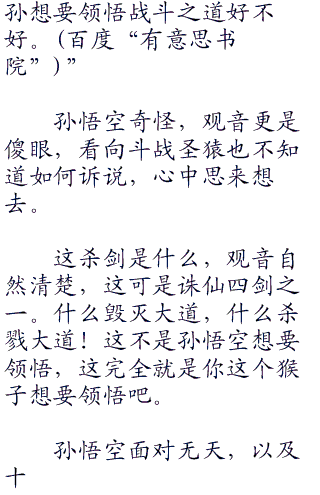 孙想要领悟战斗之道好不
好。(百度“有意思书
院”)”
孙悟空奇怪，观音更是
傻眼，看向斗战圣猿也不知
道如何诉说，心中思来想
去。
这杀剑是什么，观音自
然清楚，这可是诛仙四剑之
一。什么毁灭大道，什么杀
戮大道！这不是孙悟空想要
领悟，这完全就是你这个猴
子想要领悟吧。
孙悟空面对无天，以及
十